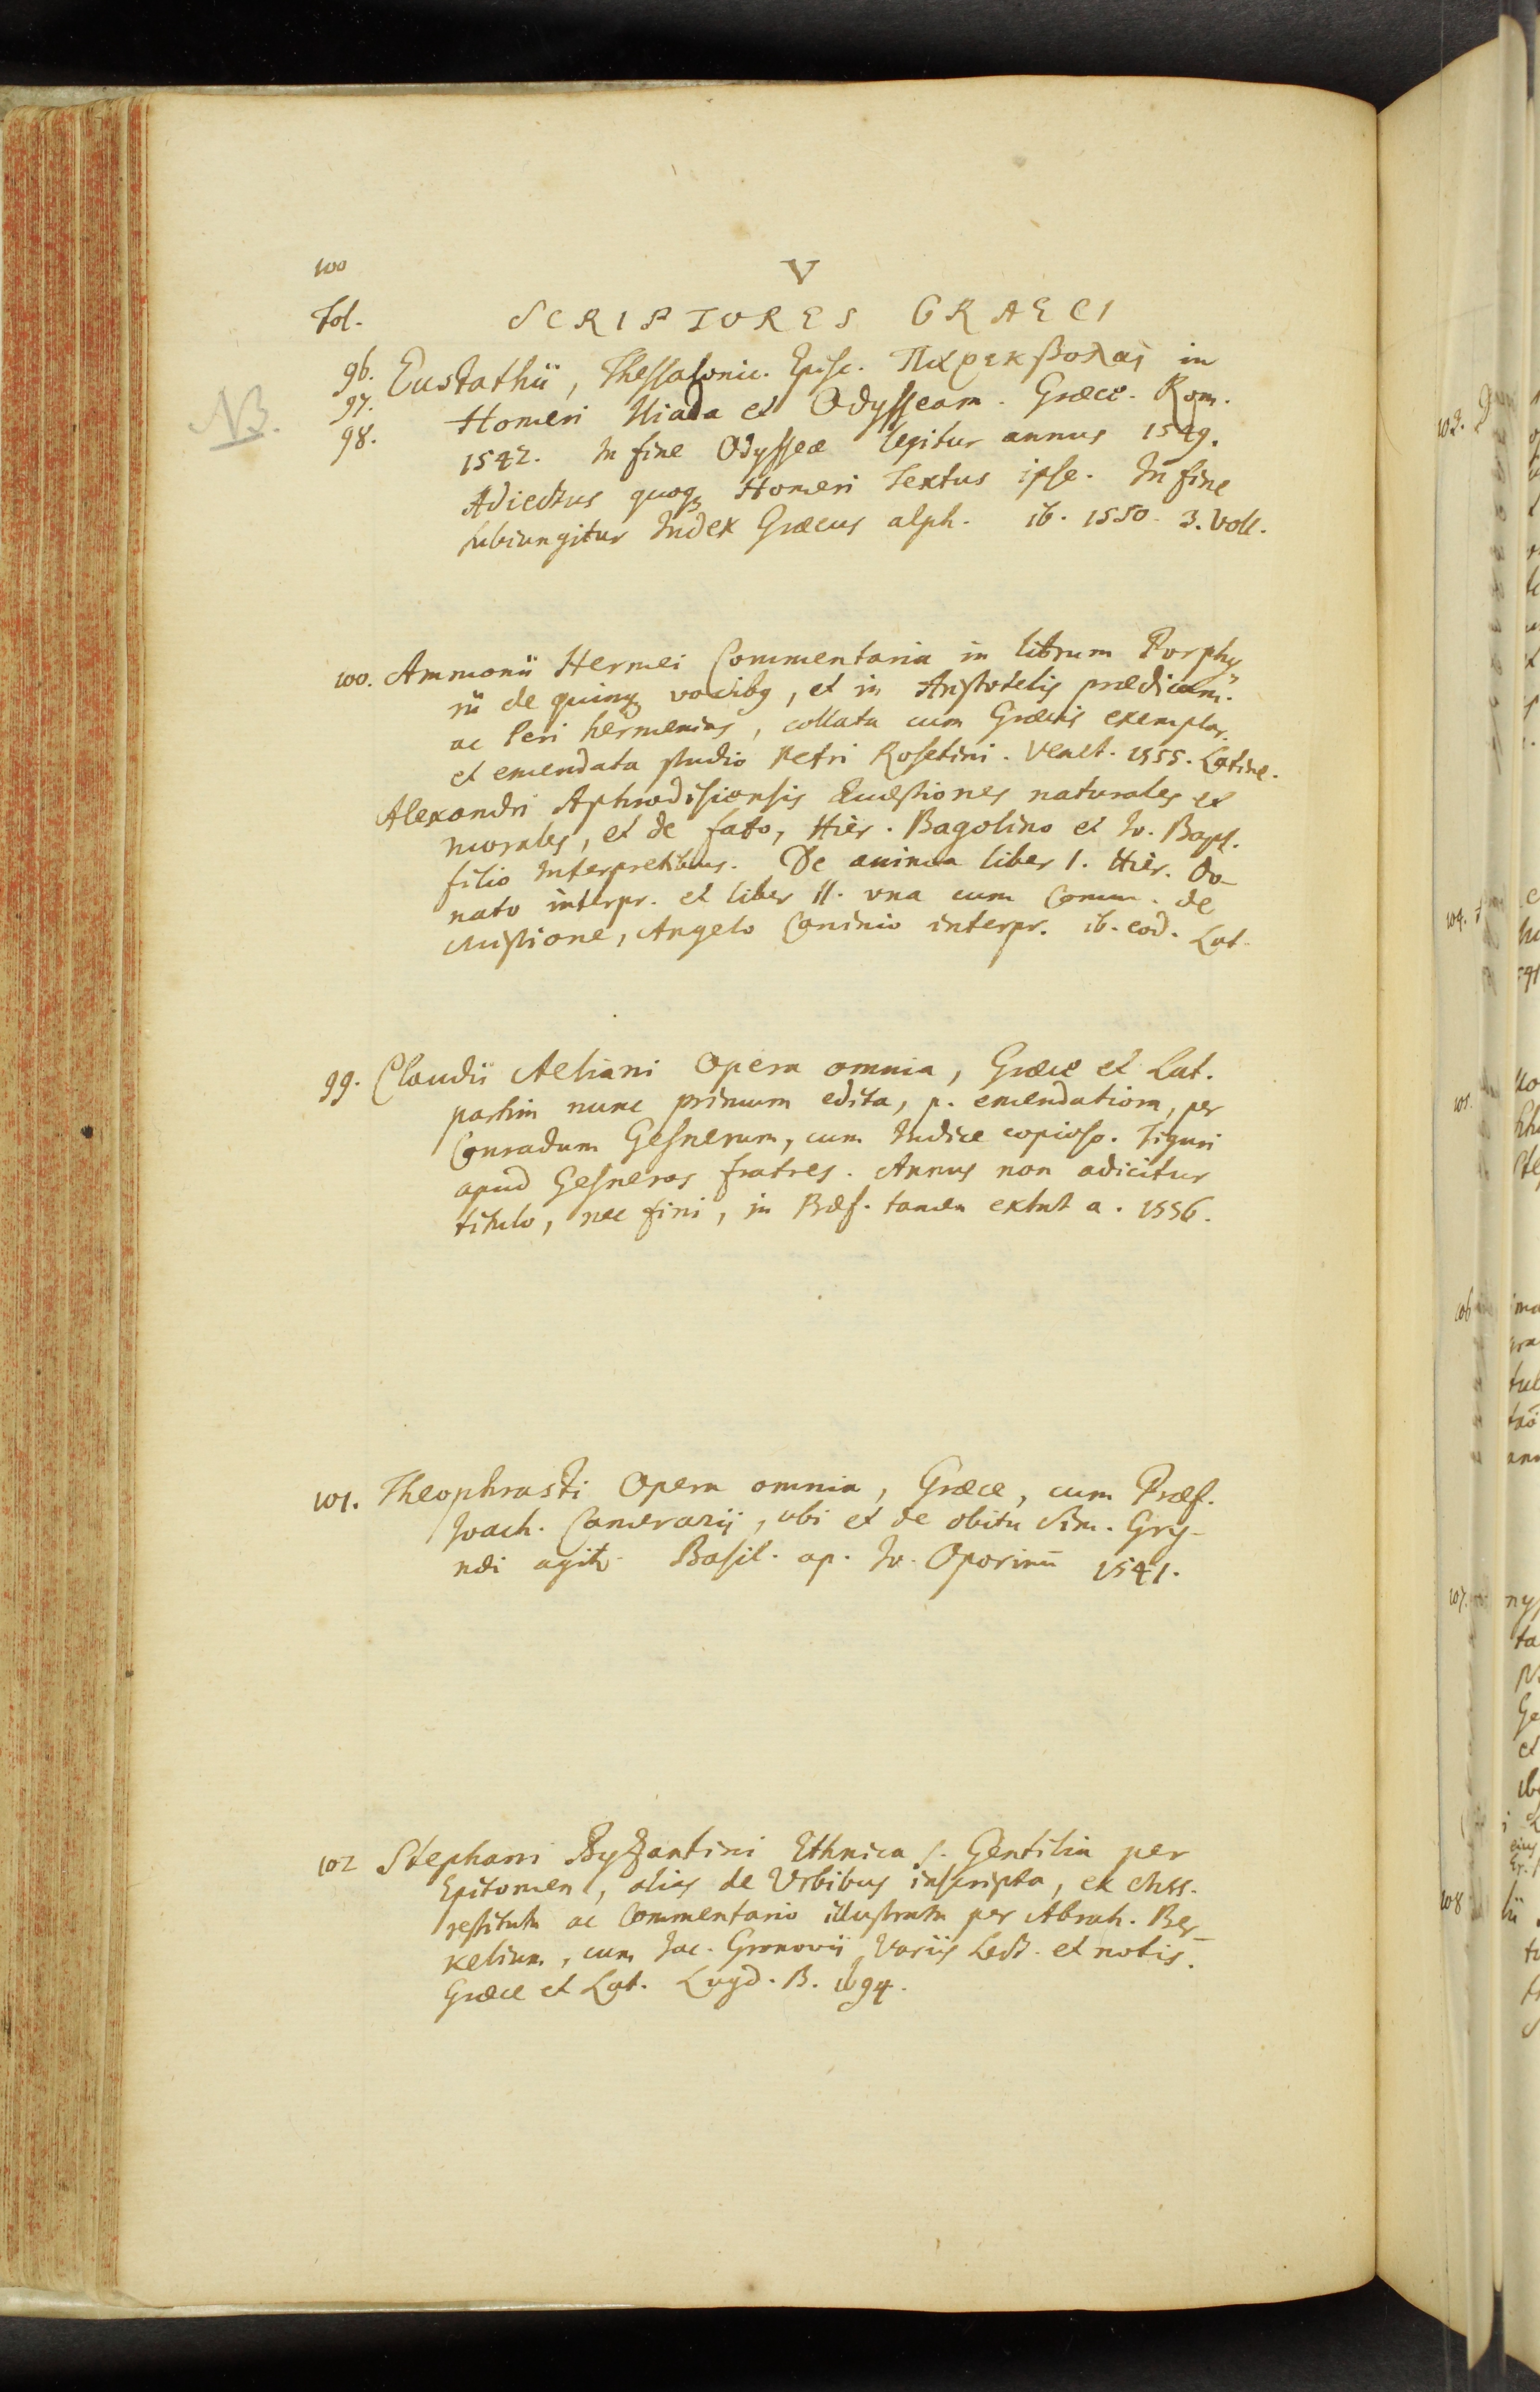 100
V
Fol.
SCRIPTORES GRAECI
NB.
96. Eustathii, Thessalonic. Episc. Παρεκβολας in
97. Homeri Iliada et Odysseam. Græce. Rom.
98. 1542. In fine Odysseæ legitur annus 1549.
Adiectus quoq Homeri Textus ipse. In fine
subiungitur Index Græcus alph. ib. 1550. 3. Voll.
100. Ammonii Hermei Commentaria in librum Porphy
rii de quinq vocibq, et in Aristotelis prædicam.
ac Peri hermenias, collata cum Græcis exemplar.
et emendata studio Petri Rosetini. Venet. 1555. Latine.
Alexandri Aphrodisiensis Quæstiones naturales et
morales, et de fato, Hier. Bagolino et Io. Bapt.
filio Interpretibus. De anima liber I. Hier. Do-
nato interpr. et liber II. vna cum Comm. de
Mistione, Angelo Caninio interpr. ib. eod. Lat.
99. Claudii Aeliani Opera omnia, Græce et Lat.
partim nunc primum edita, p. emendatiora, per
Conradum Gesnerum, cum Indice copioso. Tiguri
apud Gesneros fratres. Annus non adicitur
titulo, nec fini, in Præf. tamen extat a. 1556.
101. Theophrasti Opera omnia, Græce, cum Præf.
Ioach. Camerarij, ubi et de obitu Sim. Gry-
næi agit. Basil. ap. Io. Oporinū 1541.
102 Stephani Byzantini Ethnica s. Gentilia per
Epitomen, alias de Vrbibus inscripta, ex Mss.
restituta ac Commentario illustrata per Abrah. Ber-
kelium, cum Iac. Gronovii Variis Lect. et notis.
Græce et Lat. Lugd. B. 1694.
103.
104.
105.
106
107.
108